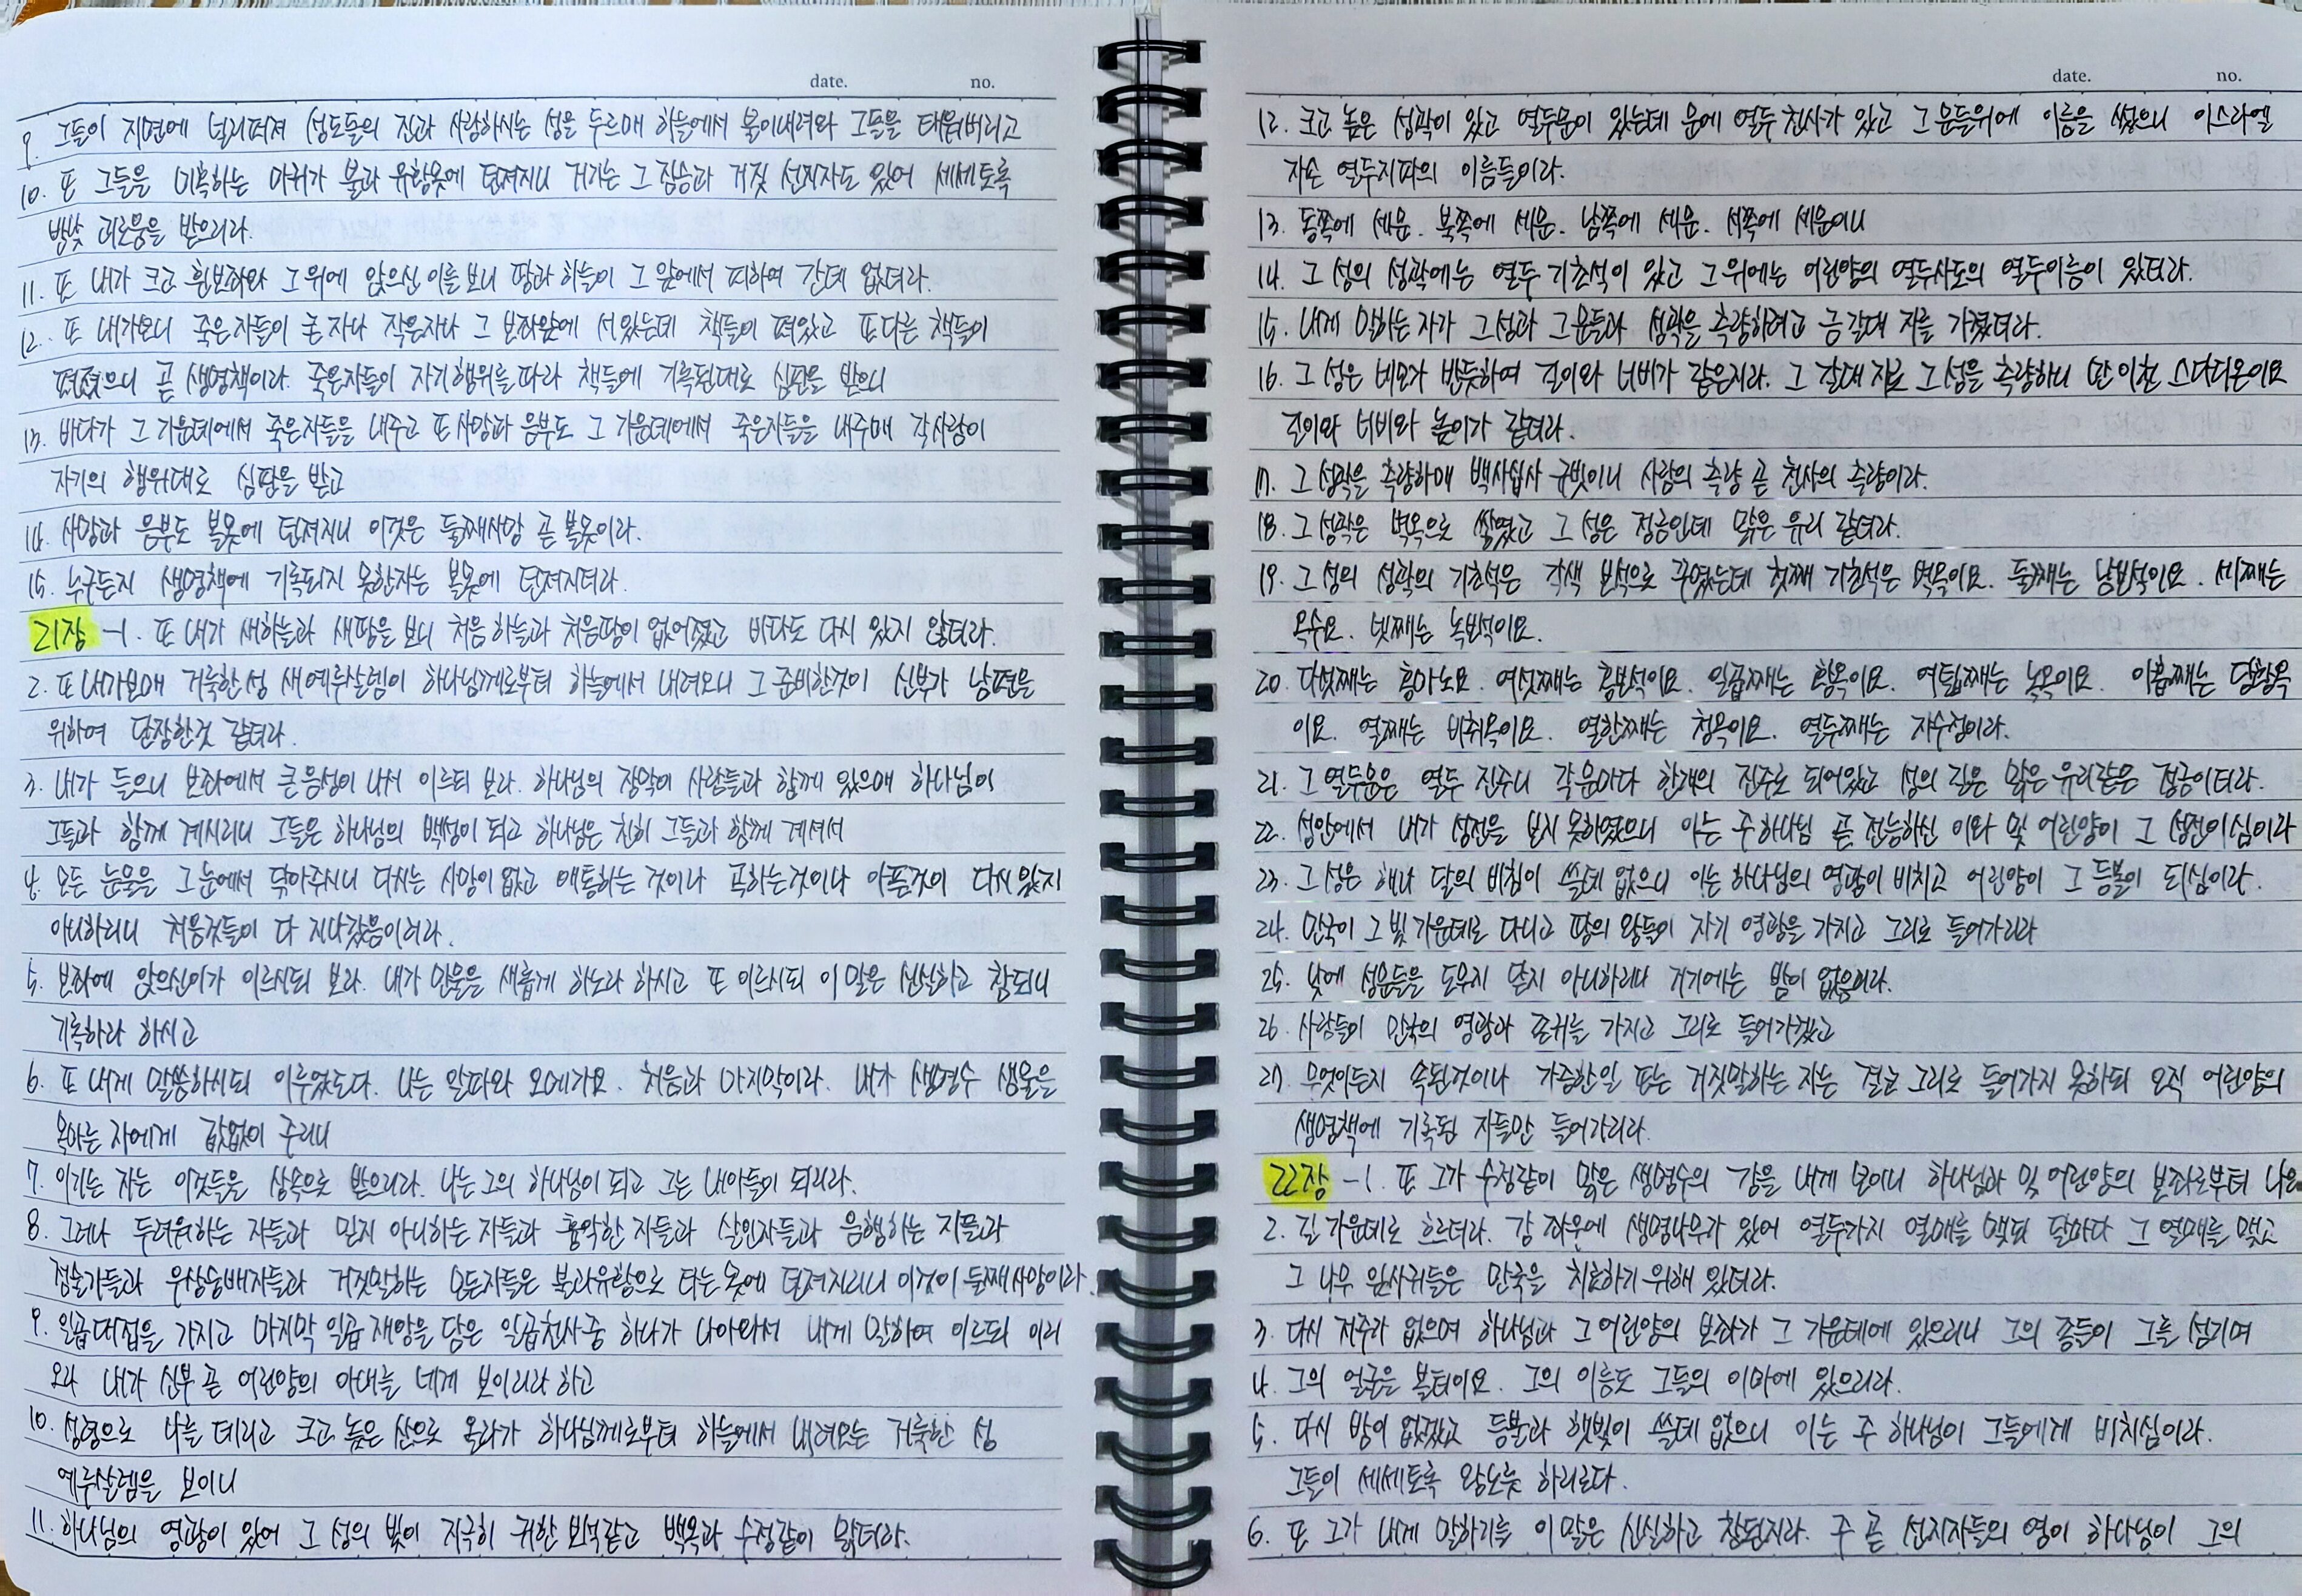 date. no.
9. 그들이 지면에 널리퍼져 성도들의 진과 사랑하시는 성을 두르매 하늘에서 불이내려와 그들을 태워버리고
10. 또 그들을 미혹하는 마귀가 불과 유황못에 던져지니 거기는 그 짐승과 거짓 선지자도 있어 세세토록
밤낮 괴로움을 받으리라.
11. 또 내가 크고 흰보좌와 그 위에 앉으신 이를 보니 땅과 하늘이 그 앞에서 피하여 간데 없더라.
12. 또 내가보니 죽은자들이 큰 자나 작은자나 그 보좌앞에 서있는데 책들이 펴있고 또 다른 책들이
펴졌으니 곧 생명책이라. 죽은자들이 자기행위를 따라 책들에 기록된대로 심판을 받으니
13. 바다가 그 가운데에서 죽은자들을 내주고 또 사망과 음부도 그 가운데에서 죽은자들을 내주매 각사람이
자기의 행위대로 심판을 받고
14. 사망과 음부도 불못에 던져지니 이것은 둘째사망 곧 불못이라.
15. 누구든지 생명책에 기록되지 못한자는 불못에 던져지더라.
21장 -1. 또 내가 새하늘과 새땅을 보니 처음 하늘과 처음땅이 없어졌고 바다도 다시 있지 않더라.
2. 또 내가보매 거룩한성 새예루살렘이 하나님께로부터 하늘에서 내려오니 그 준비한것이 신부가 남편을
위하여 단장한것 같더라.
3. 내가 들으니 보좌에서 큰음성이 나서 이르되 보라. 하나님의 장막이 사람들과 함께 있으매 하나님이
그들과 함께 계시리니 그들은 하나님의 백성이 되고 하나님은 친히 그들과 함께 계셔서
4. 모든 눈물을 그 눈에서 닦아주시니 다시는 사망이 없고 애통하는 것이나 곡하는것이나 아픈것이 다시 있지
아니하리니 처음것들이 다 지나갔음이러라.
5. 보좌에 앉으신이가 이르시되 보라. 내가 만물을 새롭게 하노라 하시고 또 이르시되 이 말은 신실하고 참되니
기록하라 하시고
6. 또 내게 말씀하시되 이루었도다. 나는 알파와 오메가요. 처음과 마지막이라. 내가 생명수 샘물을
목마른 자에게 값없이 주리니
7. 이기는 자는 이것들을 상속으로 받으리라. 나는 그의 하나님이 되고 그는 내아들이 되리라.
8. 그러나 두려워하는 자들과 믿지 아니하는 자들과 흉악한 자들과 살인자들과 음행하는 자들과
점술가들과 우상숭배자들과 거짓말하는 모든자들은 불과유황으로 타는 못에 던져지리니 이것이 둘째사망이라.
9. 일곱대접을 가지고 마지막 일곱 재앙을 담은 일곱천사중 하나가 나아와서 내게 말하여 이르되 이리
오라 내가 신부 곧 어린양의 아내를 네게 보이리라 하고
10. 성령으로 나를 데리고 크고 높은 산으로 올라가 하나님께로부터 하늘에서 내려오는 거룩한 성
예루살렘을 보이니
11. 하나님의 영광이 있어 그 성의 빛이 지극히 귀한 보석같고 벽옥과 수정같이 맑더라.
date. no.
12. 크고 높은 성곽이 있고 열두문이 있는데 문에 열두 천사가 있고 그 문들위에 이름을 썼으니 이스라엘
자손 열두지파의 이름들이라.
13. 동쪽에 세문. 북쪽에 세문. 남쪽에 세문. 서쪽에 세문이니
14. 그 성의 성곽에는 열두 기초석이 있고 그 위에는 어린양의 열두사도의 열두이름이 있더라.
15. 내게 말하는 자가 그성과 그문들과 성곽을 측량하려고 금 갈대 자를 가졌더라.
16. 그 성은 네모가 반듯하여 길이와 너비가 같은지라. 그 갈대 자로 그 성을 측량하니 만 이천 스다디온이요
길이와 너비와 높이가 같더라.
17. 그 성곽을 측량하매 백사십사 규빗이니 사람의 측량 곧 천사의 측량이라.
18. 그 성곽은 벽옥으로 쌓였고 그 성은 정금인데 맑은 유리 같더라.
19. 그 성의 성곽의 기초석은 각색 보석으로 꾸몄는데 첫째 기초석은 벽옥이요. 둘째는 남보석이요. 세째는
옥수요. 넷째는 녹보석이요.
20. 다섯째는 홍마노요. 여섯째는 홍보석이요. 일곱째는 황옥이요. 여덟째는 녹옥이요. 아홉째는 담황옥
이요. 열째는 비취옥이요. 열한째는 청옥이요. 열두째는 자수정이라.
21. 그 열두문은 열두 진주니 각 문마다 한개의 진주로 되어있고 성의 길은 맑은 유리같은 정금이더라.
22. 성안에서 내가 성전을 보지 못하였으니 이는 주 하나님 곧 전능하신 이와 및 어린양이 그 성전이심이라
23. 그 성은 해나 달의 비침이 쓸데 없으니 이는 하나님의 영광이 비치고 어린양이 그 등불이 되심이라.
24. 만국이 그 빛 가운데로 다니고 땅의 왕들이 자기 영광을 가지고 그리로 들어가리라
25. 낮에 성문들을 도무지 닫지 아니하리니 거기에는 밤이 없음이라.
26. 사람들이 만국의 영광과 존귀를 가지고 그리로 들어가겠고
27. 무엇이든지 속된것이나 가증한일 또는 거짓말하는 자는 결코 그리로 들어가지 못하되 오직 어린양의
생명책에 기록된 자들만 들어가리라.
22장 -1. 또 그가 수정같이 맑은 생명수의 강을 내게 보이니 하나님과 및 어린양의 보좌로부터 나와
2. 길 가운데로 흐르더라. 강 좌우에 생명나무가 있어 열두가지 열매를 맺되 달마다 그 열매를 맺고
그 나무 잎사귀들은 만국을 치료하기 위해 있더라.
3. 다시 저주가 없으며 하나님과 그 어린양의 보좌가 그 가운데에 있으리니 그의 종들이 그를 섬기며
4. 그의 얼굴을 볼터이요. 그의 이름도 그들의 이마에 있으리라.
5. 다시 밤이 없겠고 등불과 햇빛이 쓸데 없으니 이는 주 하나님이 그들에게 비치심이라.
그들이 세세토록 왕노릇 하리로다.
6. 또 그가 내게 말하기를 이 말은 신실하고 참된지라. 주 곧 선지자들의 영의 하나님이 그의